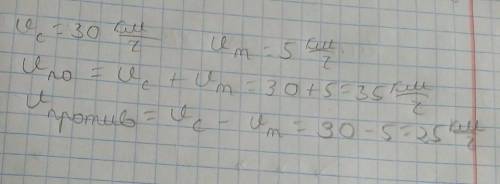 v_c = 30 км/г v_т = 5 км/г
v_по = v_c + v_т = 30 + 5 = 35 км/г
v_против = v_c - v_т = 30 - 5 = 25 км/г